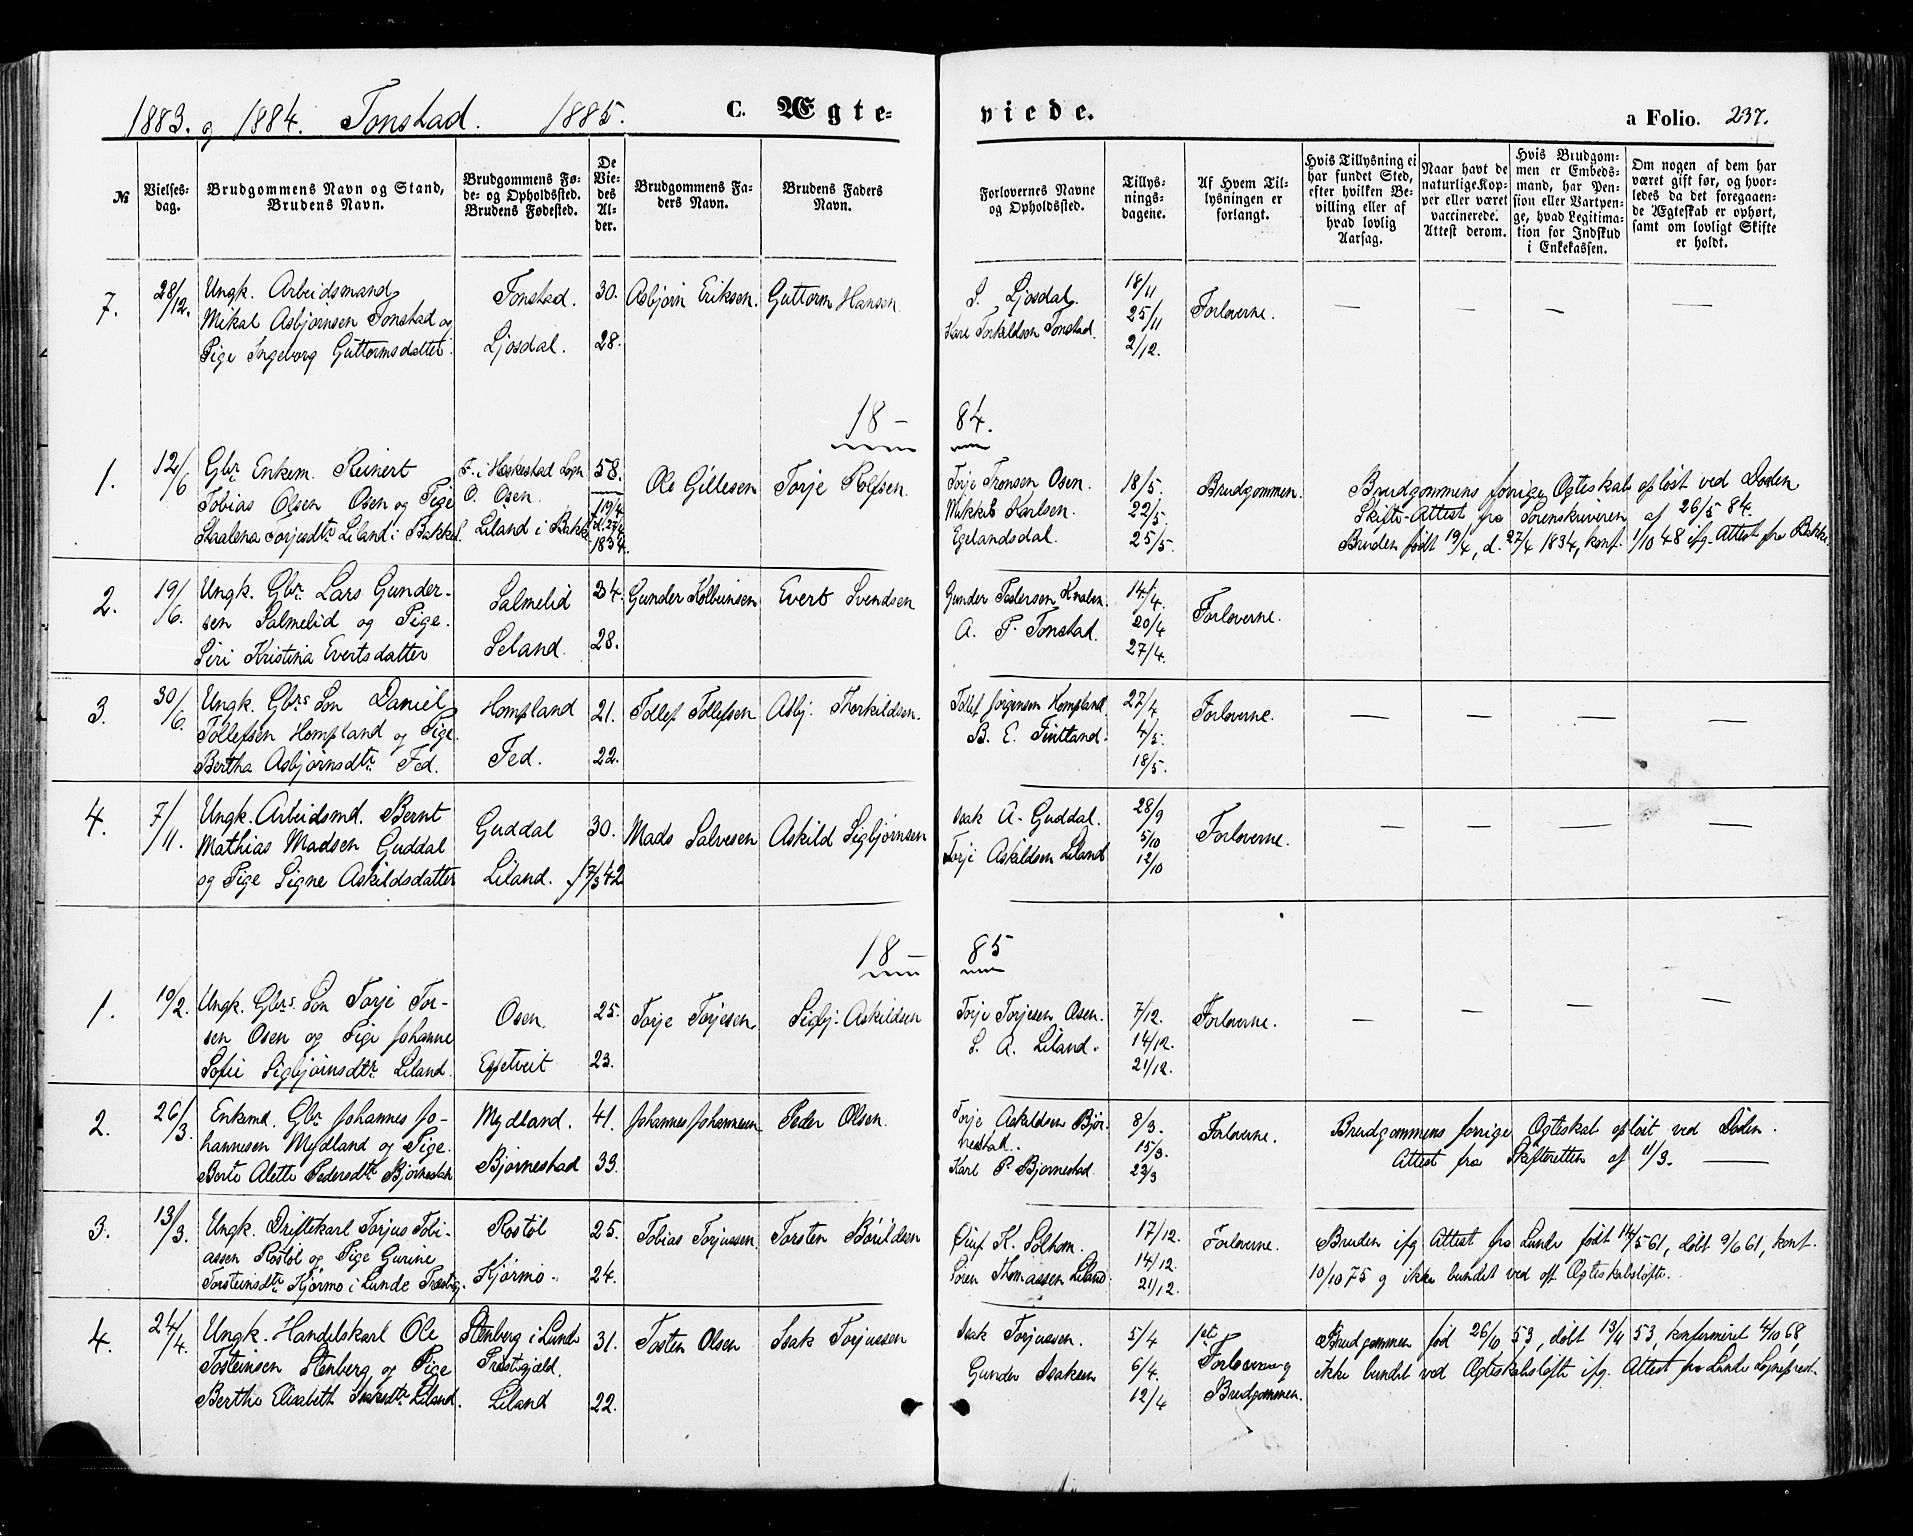 1883. og 1884. Tonstad. 1885. C. Ægteviede. a Folio. 237.
№
Vielsesdag.
Brudgommens Navn og Stand, Brudens Navn.
Brudgommens Føde- og Opholdssted. Brudens Fødested.
De Viedes Alder.
Brudgommens Faders Navn.
Brudens Faders Navn.
Forlovernes Navne og Opholdssted.
Tillysningsdagene.
Af Hvem Tillysningen er forlangt.
Hvis Tillysning ei har fundet Sted, efter hvilken Bevilling eller af hvad lovlig Aarsag.
Naar havt de naturlige Kopper eller været vaccinerede. Attest derom.
Hvis Brudgommen er Embedsmand, har Pension eller Vartpenge, hvad Legitimation for Indskud i Enkekassen.
Om nogen af dem har været gift før, og hvorledes da det foregaaende Ægteskab er ophørt, samt om lovligt Skifte er holdt.
7. 28/12. Ungk. Arbeidsmand Tonstad. 30. Asbjørn Eriksen. Guttorm Hansen. S. Ljosdal. 18/11 Forloverne. — — — —
Mikal Asbjørnsen Tonstad og Kare Torkildsen Tonstad. 25/11
Pige Ingeborg Guttormsdatter. Ljosdal. 28. 2/12.
18 — 84.
1. 12/6 Gbr. Enkem. Reinert F. i Heskestad Sogn 58. Ole Gillesen Torje Rolfsen. Torje Tronsen Osen. 18/5. Brudgommen. Brudgommens forrige Ægteskab opløst ved Døden
Tobias Olsen Osen og Pige O. Osen. 19/4 Mikkel Karlsen. 22/5. Skifte-Attest fra Sorenskriveren af 26/5 84.
Staalena Torjesdtr. Liland i Bakke S. Liland i Bakke d. 27/4 1834. Egelandsdal. 25/5. Bruden født 19/4, d. 27/4 1834, konf. 1/10 48 ifg. Attest fra Bakke.
2. 19/6. Ungk. Gbr. Lars Gunder- Salmelid 24. Gunder Kolbeinsen Evert Svendsen Gunder Pedersen Kvalen. 14/4. Forloverne.
sen Salmelid og Pige. A. P. Tonstad. 20/4
Siri Kristina Evertsdatter Seland. 28. 27/4.
3. 30/6. Ungk. Gbrs. Søn Daniel Hompland 21. Tollef Tollefsen Asbj. Thorkildsen. Tollef Jørgensen Hompland 27/4 Forloverne. — — — —
Tollefsen Hompland og Pige. B. E. Fintland. 4/5.
Bertha Asbjørnsdtr. Fed. Fed. 22. 18/5.
4. 7/11. Ungk. Arbeidsmd. Bernt Guddal 30. Mads Salvesen Askild Sigbjørnsen Isak A. Guddal. 28/9 Forloverne. — — — —
Mathias Madsen Guddal Torje Askildsen Liland 5/10
og Pige Signe Askildsdatter Liland. f 7/3 42 12/10
18 — 85
1. 19/2. Ungk. Gbrs. Søn Torje Tor- Osen. 25. Torje Torjesen Sigbj. Askildsen Torje Torjesen Osen. 7/12. Forloverne. — — — —
sen Osen og Pige Johanne S. A. Liland. 14/12.
Sofie Sigbjørnsdtr. Liland. Eftetveit 23. 21/12.
2. 26/3. Enkemd. Gbr. Johannes Jo- Mydland. 41. Johannes Johannesen Peder Olsen. Torje Askildsen Bjør- 8/3. Forloverne. Brudgommens forrige Ægteskab opløst ved Døden.
hannesen Mydland og Pige. nestad. 15/3. Attest fra Skifteretten af 11/3. —
Berte Alette Pedersdtr. Bjørnestad Bjørnestad 33. Karl P. Bjørnestad 22/3
3. 13/3. Ungk. Driftekarl Torjus Tobi- Rostøl 25. Tobias Torjussen Torsten Bårildsen Oluf K. Solhom. 17/12. Forloverne. Bruden ifg. Attest fra Lunde født 14/5 61, døbt 9/6 61, konf.
assen Rostøl og Pige Gurine 14/12. 10/10 75 og ikke bundet ved oft. Ægteskabsløfte.
Torsteinsdtr. Kjørmo i Lunde Præstg. Kjørmo. 24. Søren Thomassen Liland. 21/12.
4. 24/4. Ungk. Handelskarl Ole Stenberg i Lunde 31. Tosten Olsen Isak Torjussen Isak Torjussen. 5/4 Forloverne og Brudgommen fød 26/10 53, døbt 13/11 53, konfirmeret 4/10 68,
Tosteinsen Stenberg og Pige Præstegjæld. Gunder Isaksen 6/4. ikke bundet ved Ægteskabsløfte ifg. Attest fra Lunde Sognepræst.
Berthe Elisabeth Isaksdtr. Liland. Liland 22. 12/4 Brudgommen.